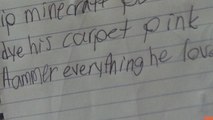 ip minecraft
dye his carpet pink
Hammer everything he love